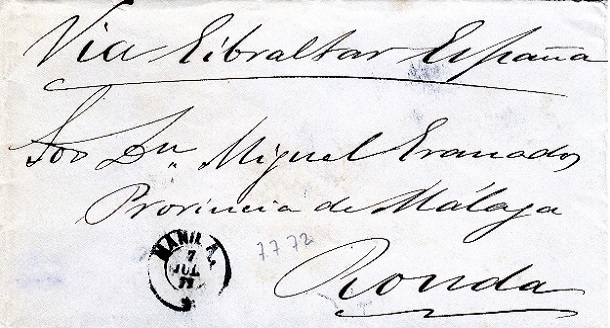 Via Gibraltar España
Sor Dn. Miguel Granados
Provincia de Málaga
MANILA
7
JUL
7 7 72
Ronda